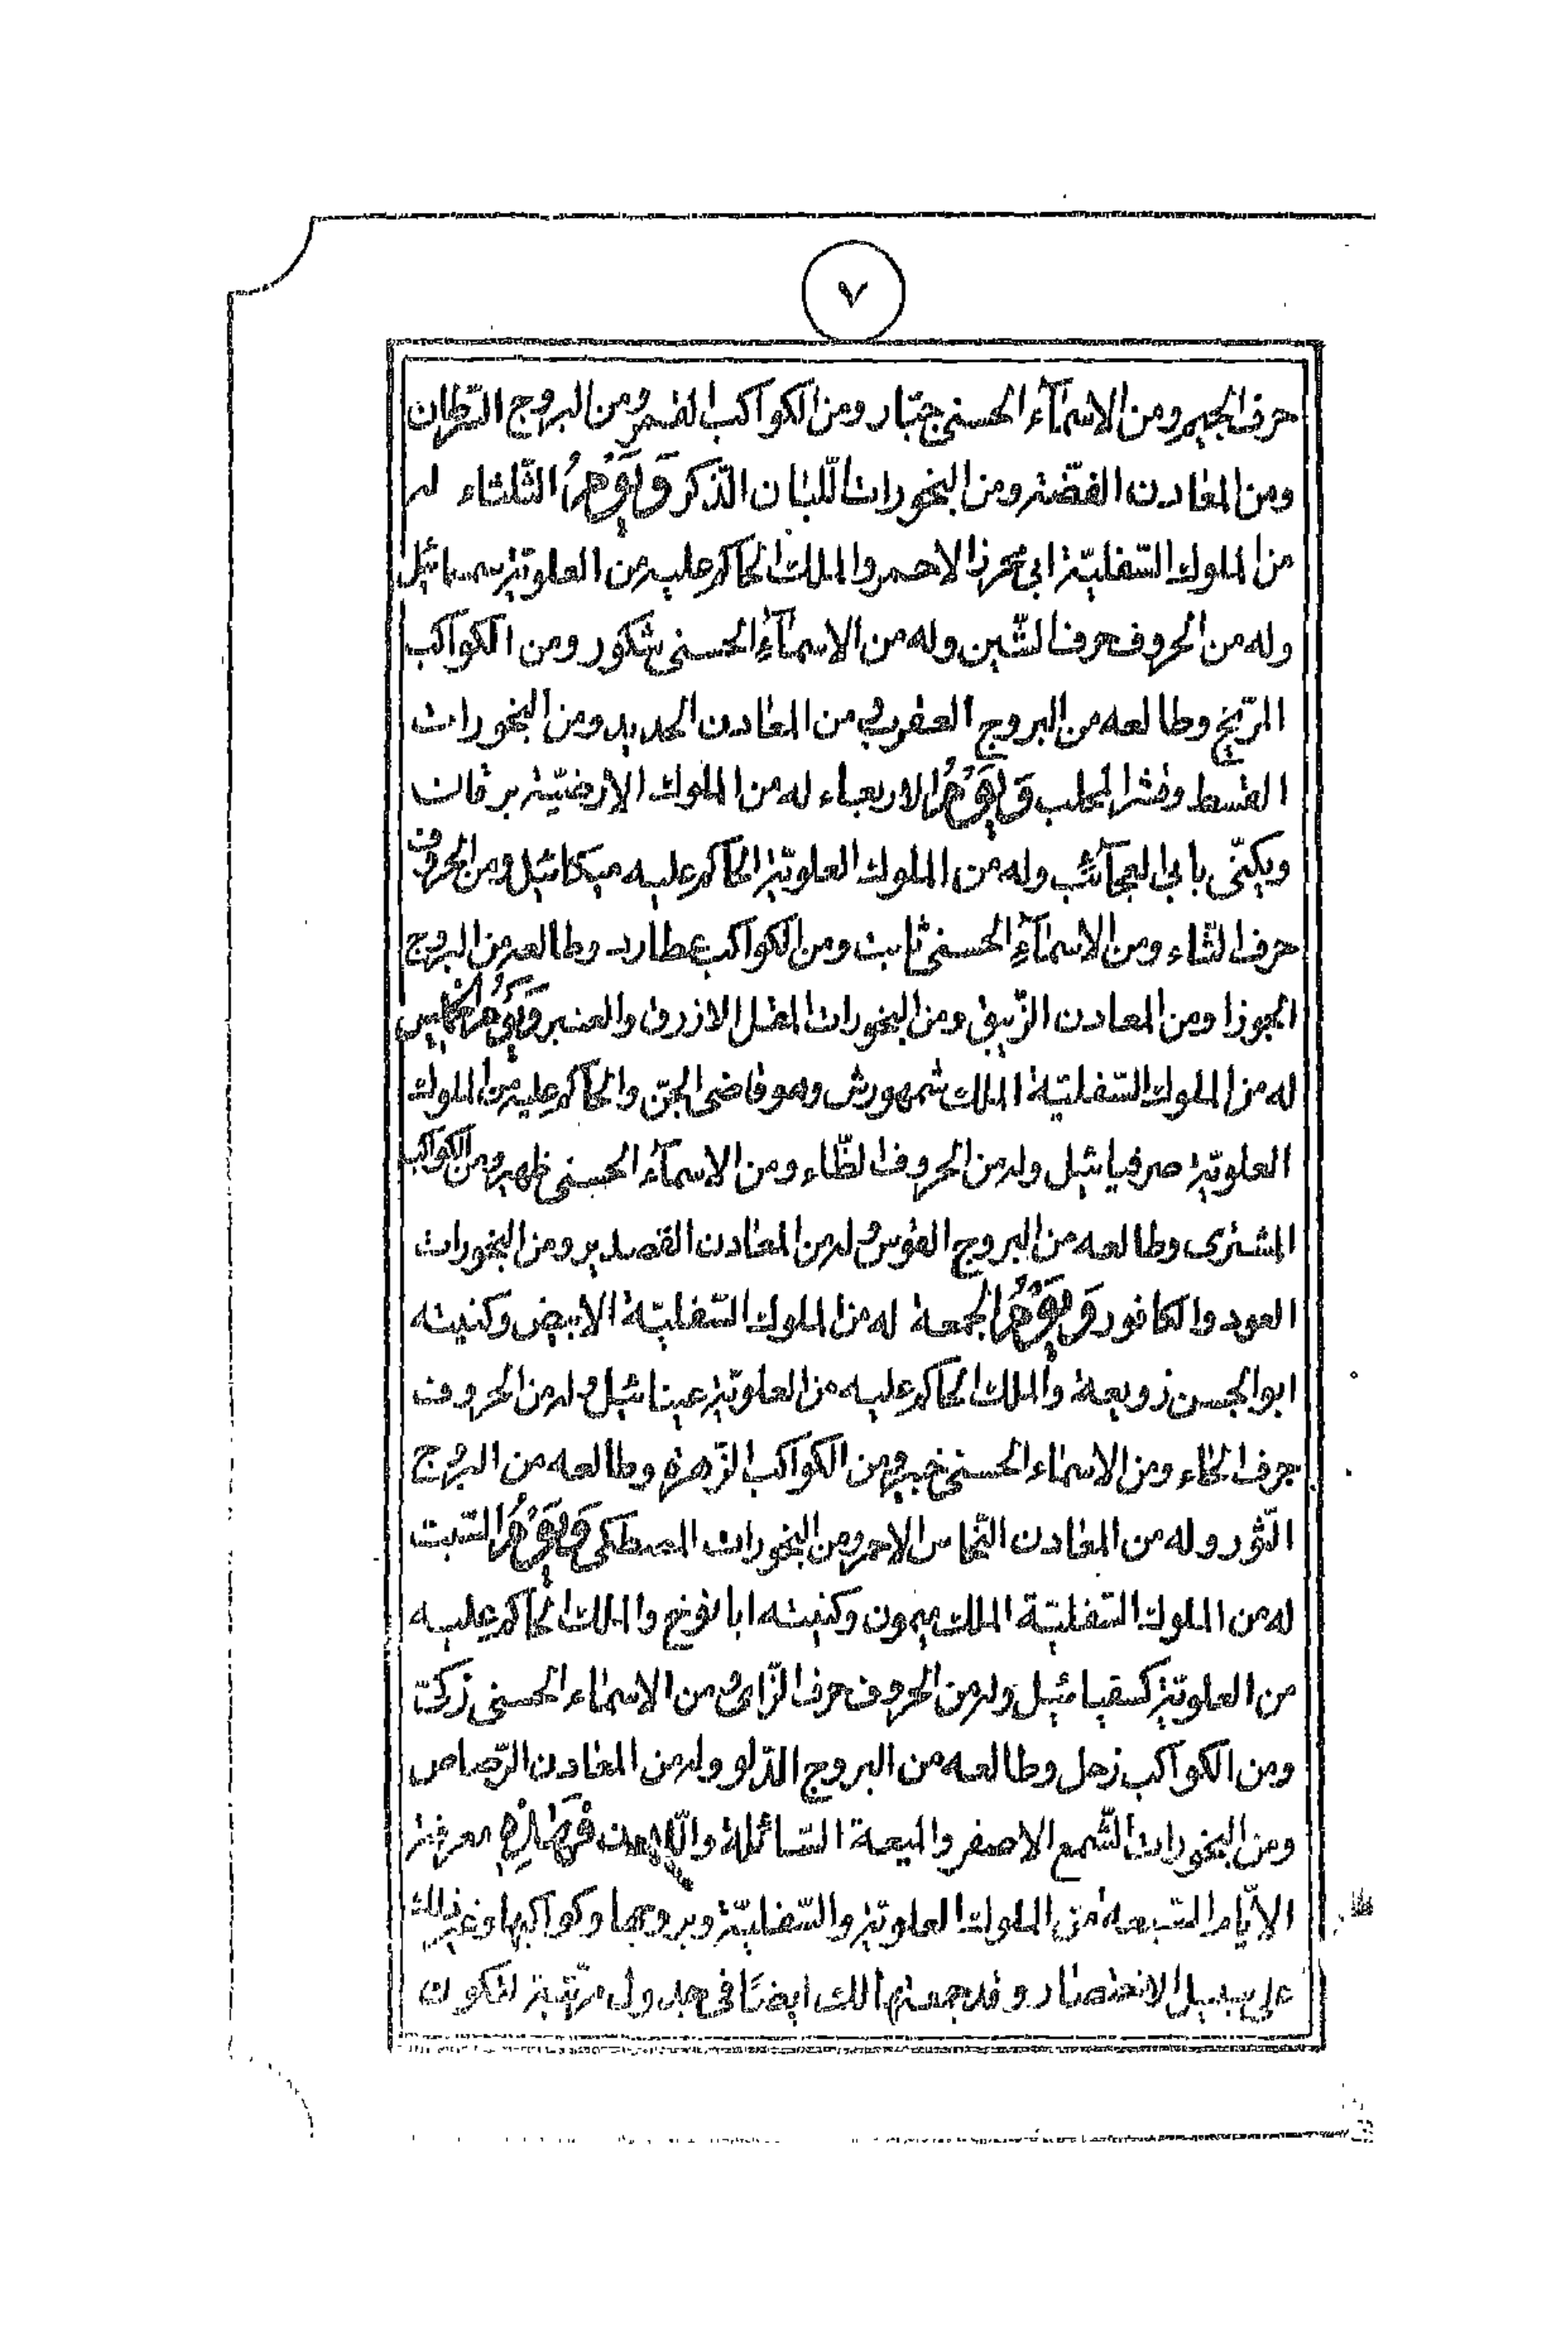 ٧
حرف الجيم ومن الاسمآء الحسنى جبّار ومن الكواكب القمر ومن البروج السّرطان
ومن المعادن الفضّة ومن البخورات اللّبان الذّكر وَيَوْمُ الثّلثاء له
من الملوك السّفليّة ابى محرز الاحمر والملك الحاكم عليه من العلويّة سمسائيل
وله من الحروف حرف الشّين وله من الاسمآءِ الحسنى شكور ومن الكواكب
المرّيخ وطالعه من البروج العقرب و من المعادن الحديد ومن البخورات
القسط وقشر المحلب وَيَوْمُ الاربعاء له من الملوك الارضيّة برقان
ويكنّى بابى العجآئب وله من الملوك العلويّة الحاكم عليه ميكائيل ومن الحروف
حرف الثاء ومن الاسمآءِ الحسنى ثابت ومن الكواكب عطارد وطالعه من البروج
الجوزا ومن المعادن الزّيبق ومن البخورات المقل الازرق والعنبر وَيَوْمُ الخميس
له من الملوك السّفليّة الملك شمهورش وهو قاضى الجنّ والحاكم عليه من الملوك
العلويّة صرفيائيل وله من الحروف الظّاء ومن الاسمآء الحسنى ظهير ومن الكواكب
المشترى وطالعه من البروج القوس وله من المعادن القصدير ومن البخورات
العود والكافور وَيَوْمُ الجمعة له من الملوك السّفليّة الابيض وكنيته
ابو الحسن زوبعة والملك الحاكم عليه من العلويّة عينائيل وله من الحروف
حرف الخاء ومن الاسماء الحسنى خبير ومن الكواكب الزّهرة وطالعه من البروج
الثّور وله من المعادن النّحاس الاحمر ومن البخورات المصطكى وَيَوْمُ السّبت
له من الملوك السّفليّة الملك ميمون وكنيته ابا نوخ والملك الحاكم عليه
من العلويّة كسفيائيل وله من الحروف حرف الزّاى ومن الاسماء الحسنى زكىّ
ومن الكواكب زحل وطالعه من البروج الدّلو وله من المعادن الرّصاص
ومن البخورات الشّمع الاصفر والميعة السّائلة واللّادن فَهٰذِهِ معرفة
الايّام السّبعة من الملوك العلويّة والسّفليّة وبروجها وكواكبها وغير ذلك
على سبيل الاختصار وقد جمعتها لك ايضًا فى جدول مرتّبة لتكون